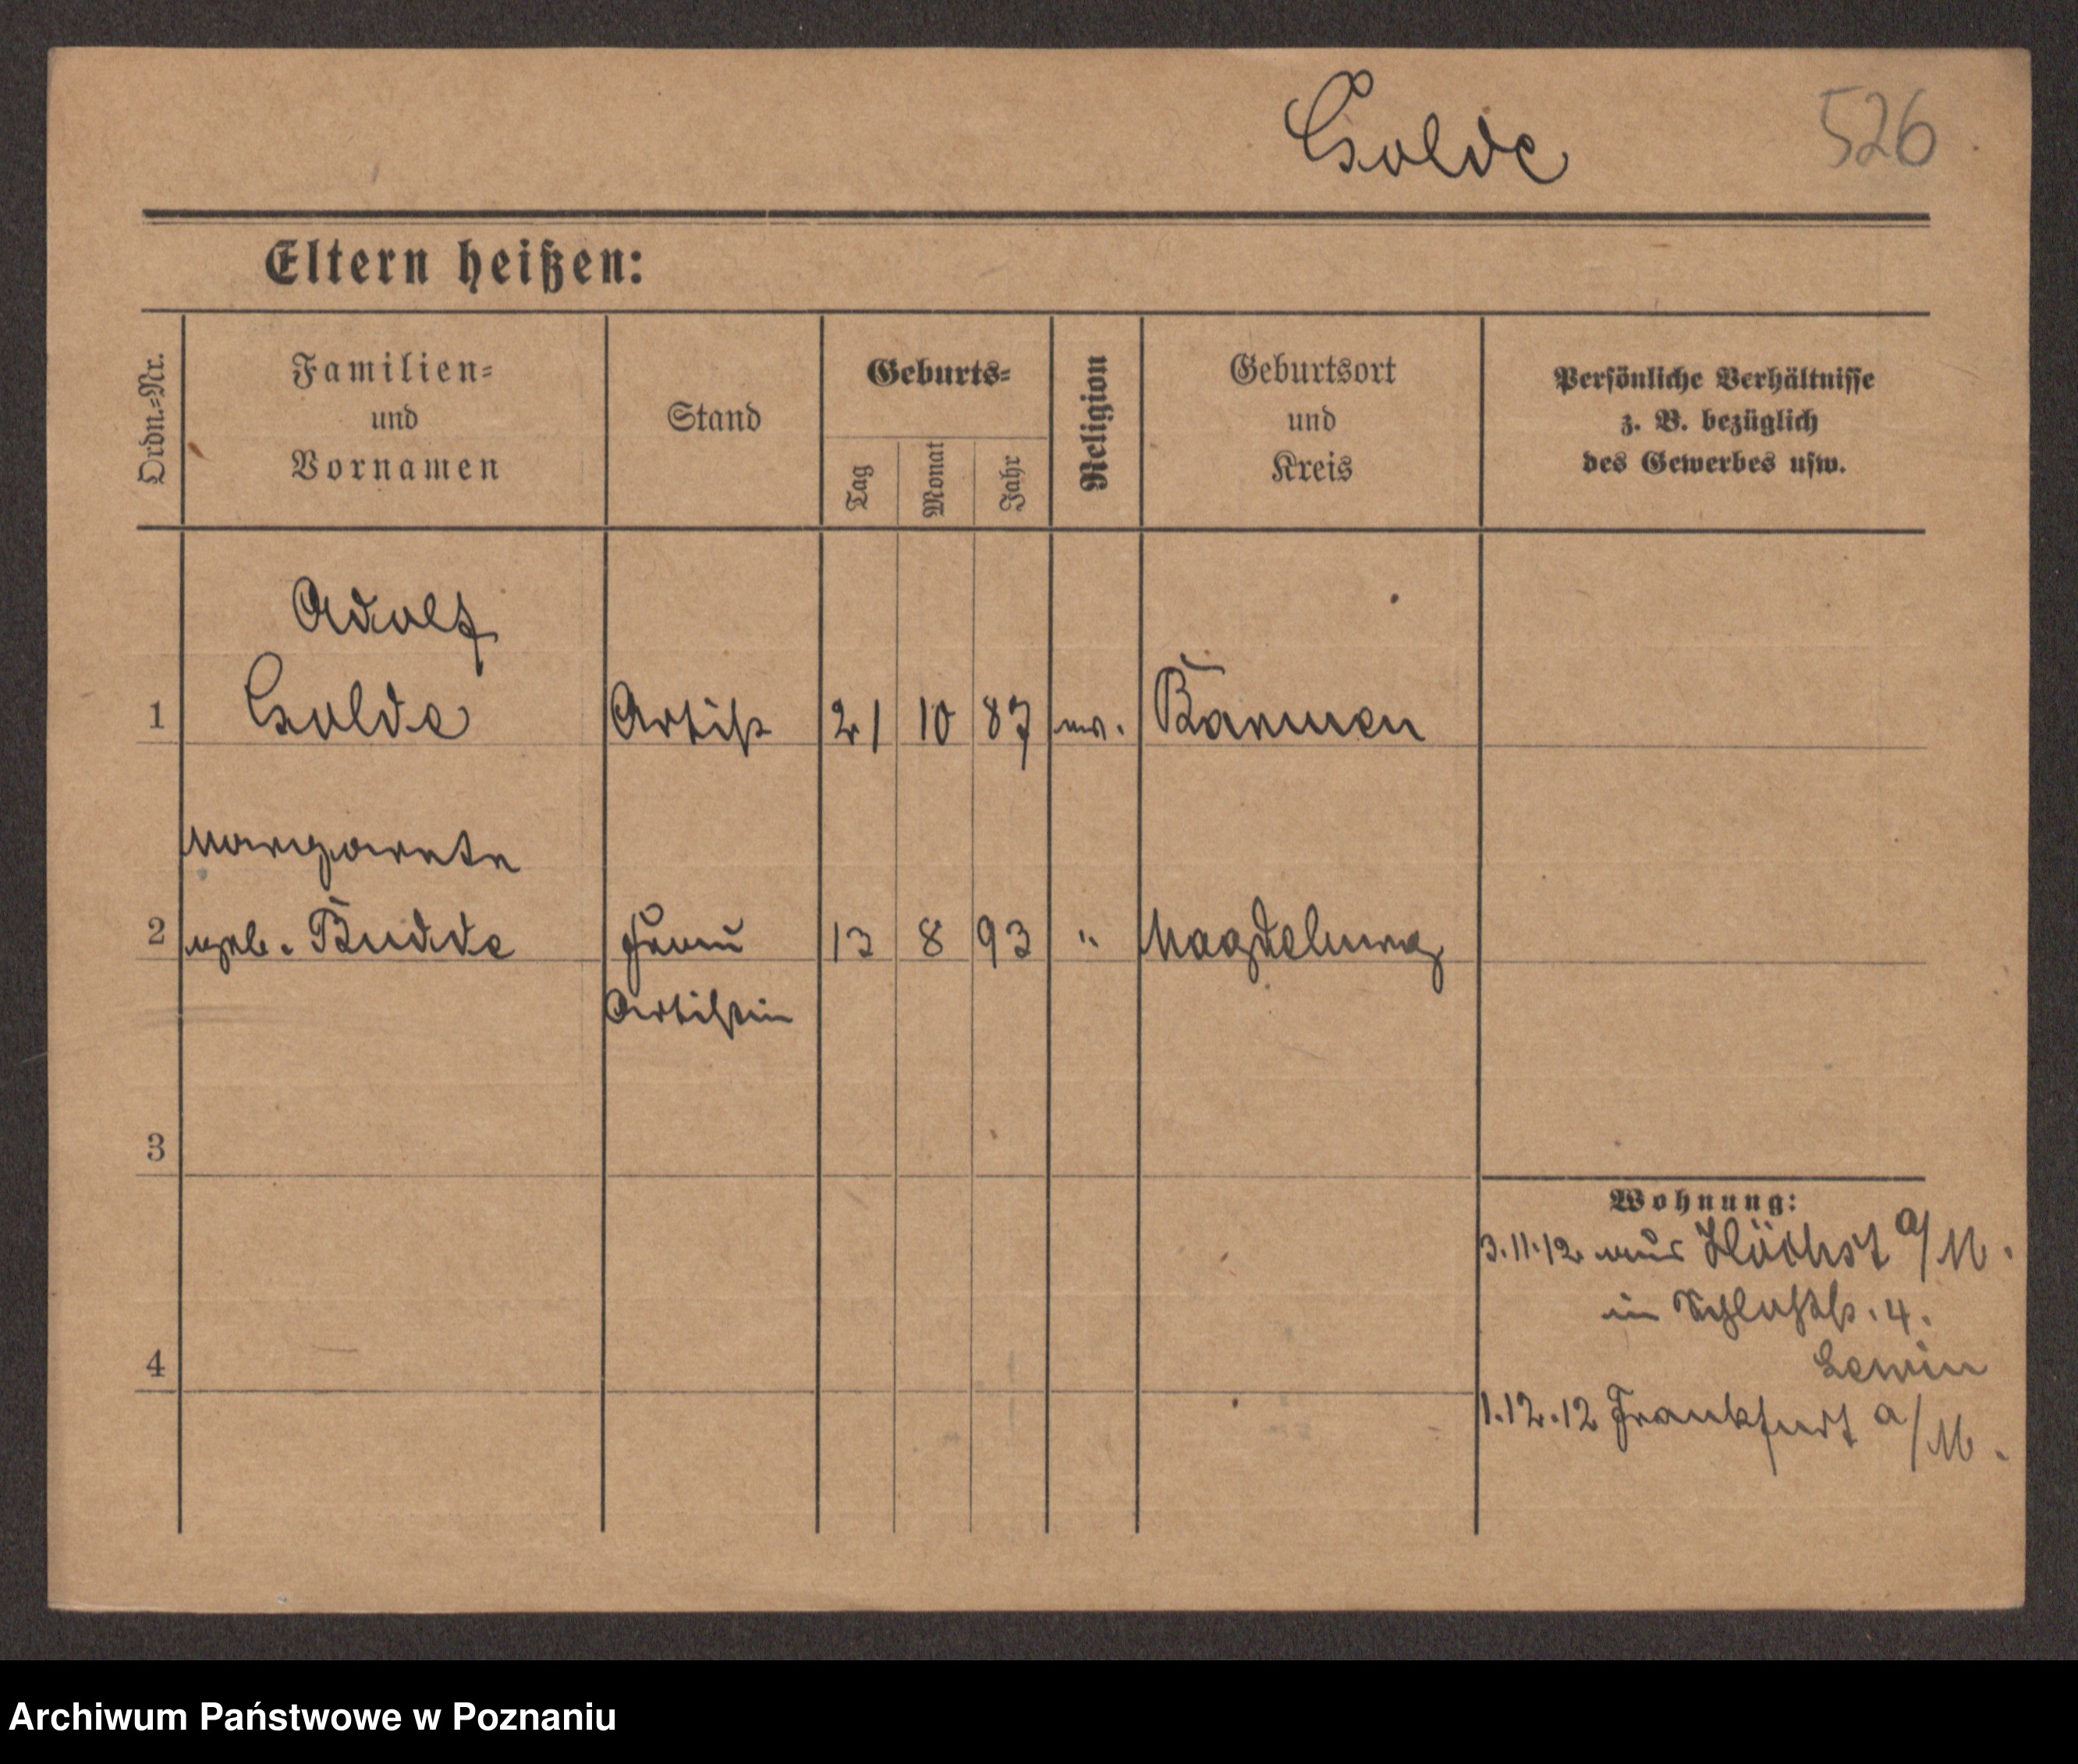 Golde 526
Eltern heißen:
Ordn.=Nr. Familien= und Vornamen Stand Geburts= Tag Monat Jahr Religion Geburtsort und Kreis Persönliche Verhältnisse z. B. bezüglich des Gewerbes usw.
Adolf
1 Golde Artist 21 10 87 ev. Barmen
Margarete
2 geb. Budde Frau 13 8 93 " Magdeburg
Artistin
3
Wohnung:
3.11.12 aus Höchst a/M.
in Schloßstr. 4.
Lewin
4
1.12.12 Frankfurt a/M.
Archiwum Państwowe w Poznaniu